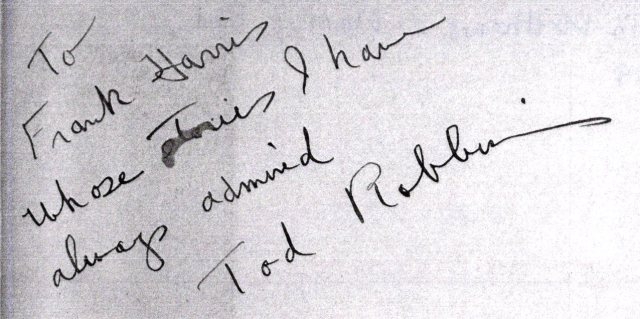 To
Frank Harris
whose stories I have
always admired
Tod Robbins